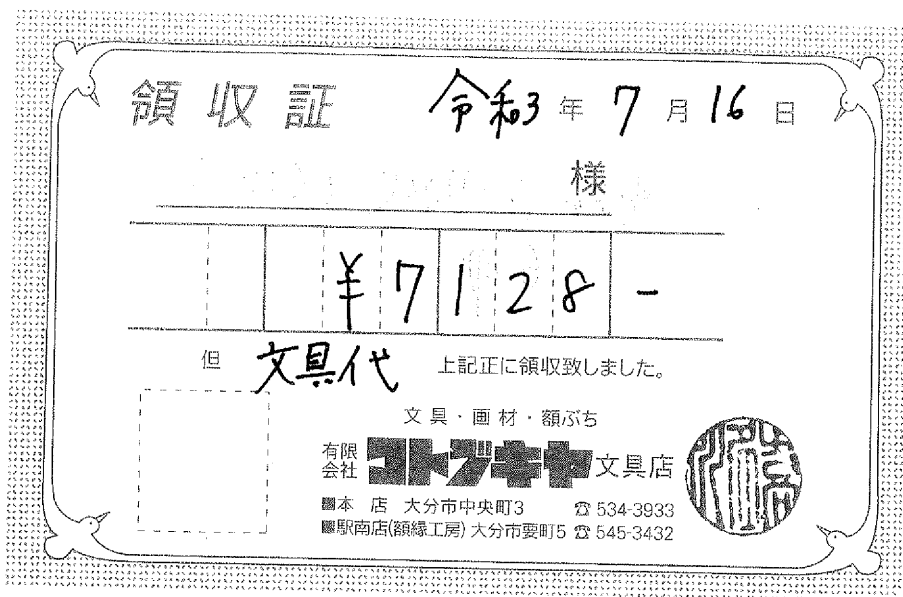 領収証 令和3年7月16日
様
¥7128-
但 文具代 上記正に領収致しました。
文具・画材・額ぶち
有限会社 コトブキヤ文具店
■本 店 大分市中央町3 ☎534-3933
■駅南店(額縁工房) 大分市要町5 ☎545-3432